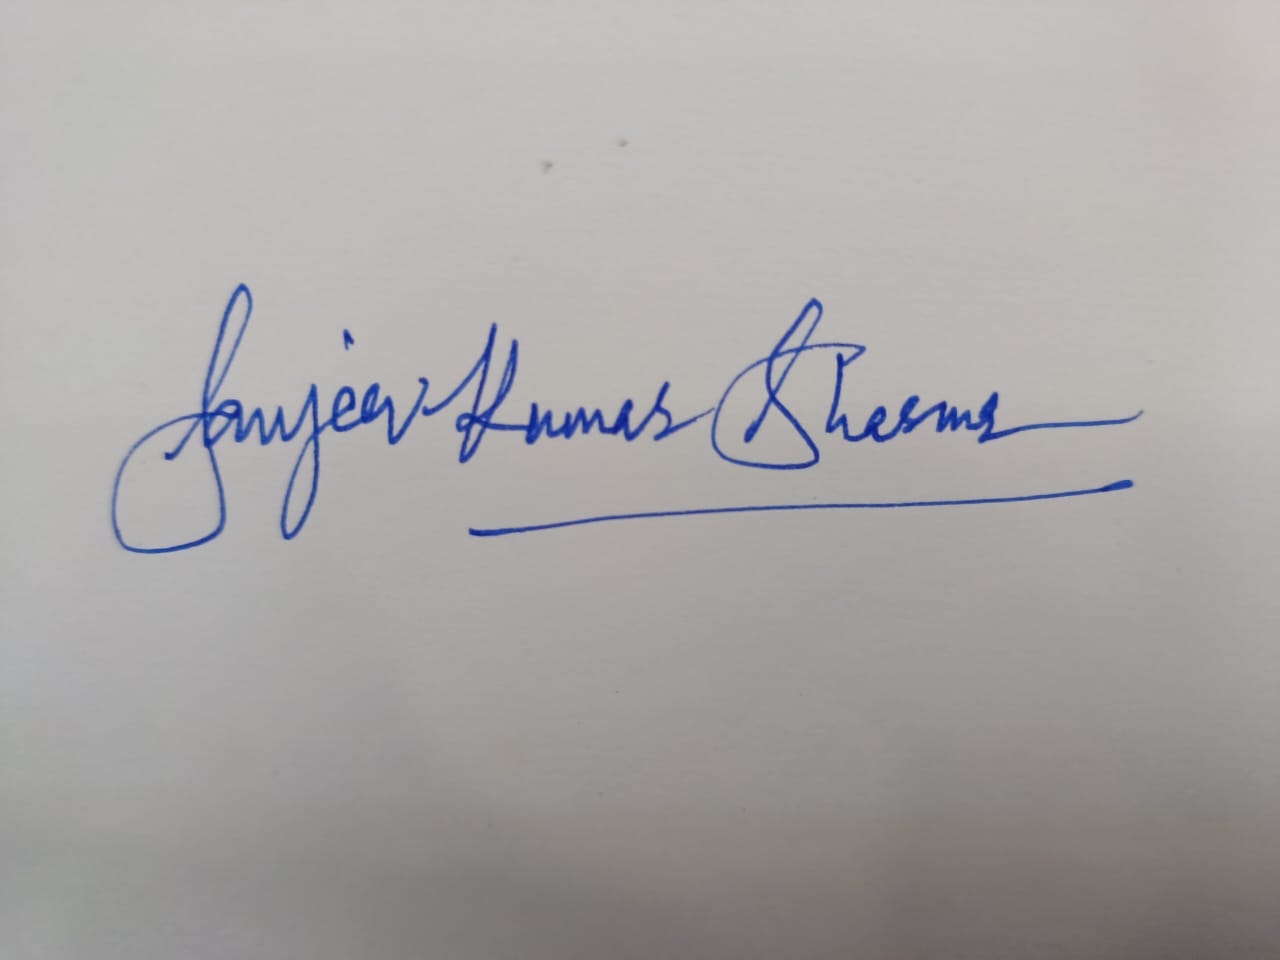 Sanjeev Kumar Sharma